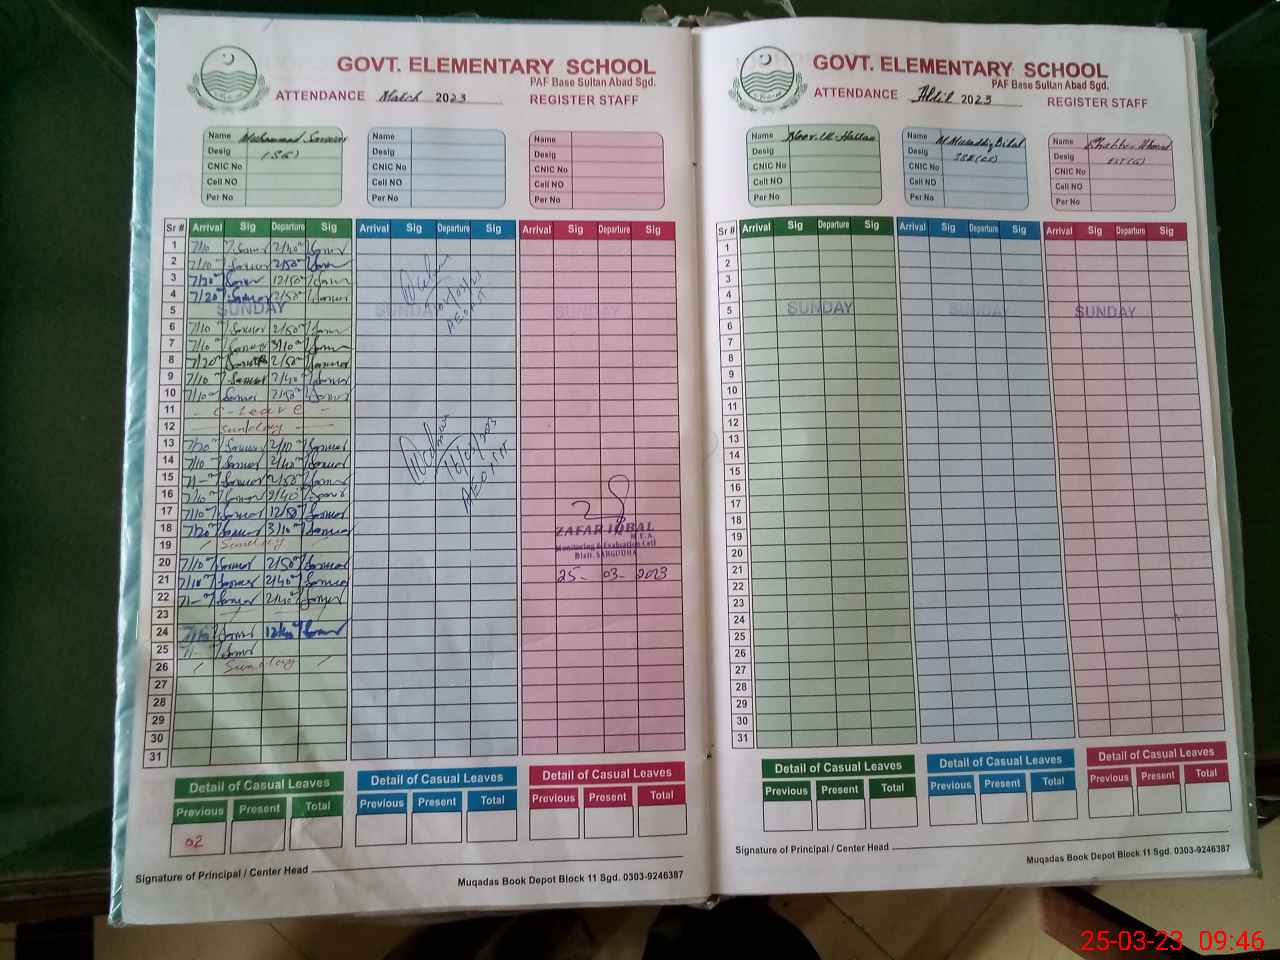 GOVT. ELEMENTARY SCHOOL
PAF Base Sultan Abad Sgd.
ATTENDANCE March 2023 REGISTER STAFF
Name Muhammad Sarwar
Desig (SG)
CNIC No
Cell NO
Per No
Name
Desig
CNIC No
Cell NO
Per No
Name
Desig
CNIC No
Cell NO
Per No
Sr # Arrival Sig Departure Sig Arrival Sig Departure Sig Arrival Sig Departure Sig
1 7/10 Sarwar 2/40 Sarwar
2 7/10 Sarwar 2/50 Sarwar
3 7/20 Sarwar 12/50 Sarwar
4 7/20 Sarwar 2/50 Sarwar
5 SUNDAY SUNDAY SUNDAY
6 7/10 Sarwar 2/50 Sarwar
7 7/10 Sarwar 3/10 Sarwar
8 7/20 Sarwar 2/50 Sarwar
9 7/10 Sarwar 2/40 Sarwar
10 7/10 Sarwar 2/50 Sarwar
11 - C-Leave -
12 Sunday
13 7/20 Sarwar 2/10 Sarwar
14 7/10 Sarwar 2/40 Sarwar
15 7/- Sarwar 2/50 Sarwar
16 7/10 Sarwar 2/40 Sarwar
17 7/10 Sarwar 12/50 Sarwar
18 7/20 Sarwar 3/10 Sarwar
19 Sunday
20 7/10 Sarwar 2/50 Sarwar
21 7/10 Sarwar 2/40 Sarwar
22 7/- Sarwar 2/40 Sarwar
23
24 7/10 Sarwar 12/40 Sarwar
25 7/- Sarwar
26 / Sunday /
27
28
29
30
31
AEO
16/03/2023
AEO
ZAFAR IQBAL
M.E.A.
Monitoring & Evaluation Cell
Distt. SARGODHA
25-03-2023
Detail of Casual Leaves Detail of Casual Leaves Detail of Casual Leaves
Previous Present Total Previous Present Total Previous Present Total
02
Signature of Principal / Center Head
Muqadas Book Depot Block 11 Sgd. 0303-9246387
GOVT. ELEMENTARY SCHOOL
PAF Base Sultan Abad Sgd.
ATTENDANCE April 2023 REGISTER STAFF
Name Noor-ul-Hassan
Desig
CNIC No
Cell NO
Per No
Name M. Musaddiq Bilal
Desig SSE(CS)
CNIC No
Cell NO
Per No
Name Shabbir Ahmad
Desig EST(G)
CNIC No
Cell NO
Per No
Sr # Arrival Sig Departure Sig Arrival Sig Departure Sig Arrival Sig Departure Sig
1
2
3
4
5 SUNDAY SUNDAY SUNDAY
6
7
8
9
10
11
12
13
14
15
16
17
18
19
20
21
22
23
24
25
26
27
28
29
30
31
Detail of Casual Leaves Detail of Casual Leaves Detail of Casual Leaves
Previous Present Total Previous Present Total Previous Present Total
Signature of Principal / Center Head
Muqadas Book Depot Block 11 Sgd. 0303-9246387
25-03-23 09:46